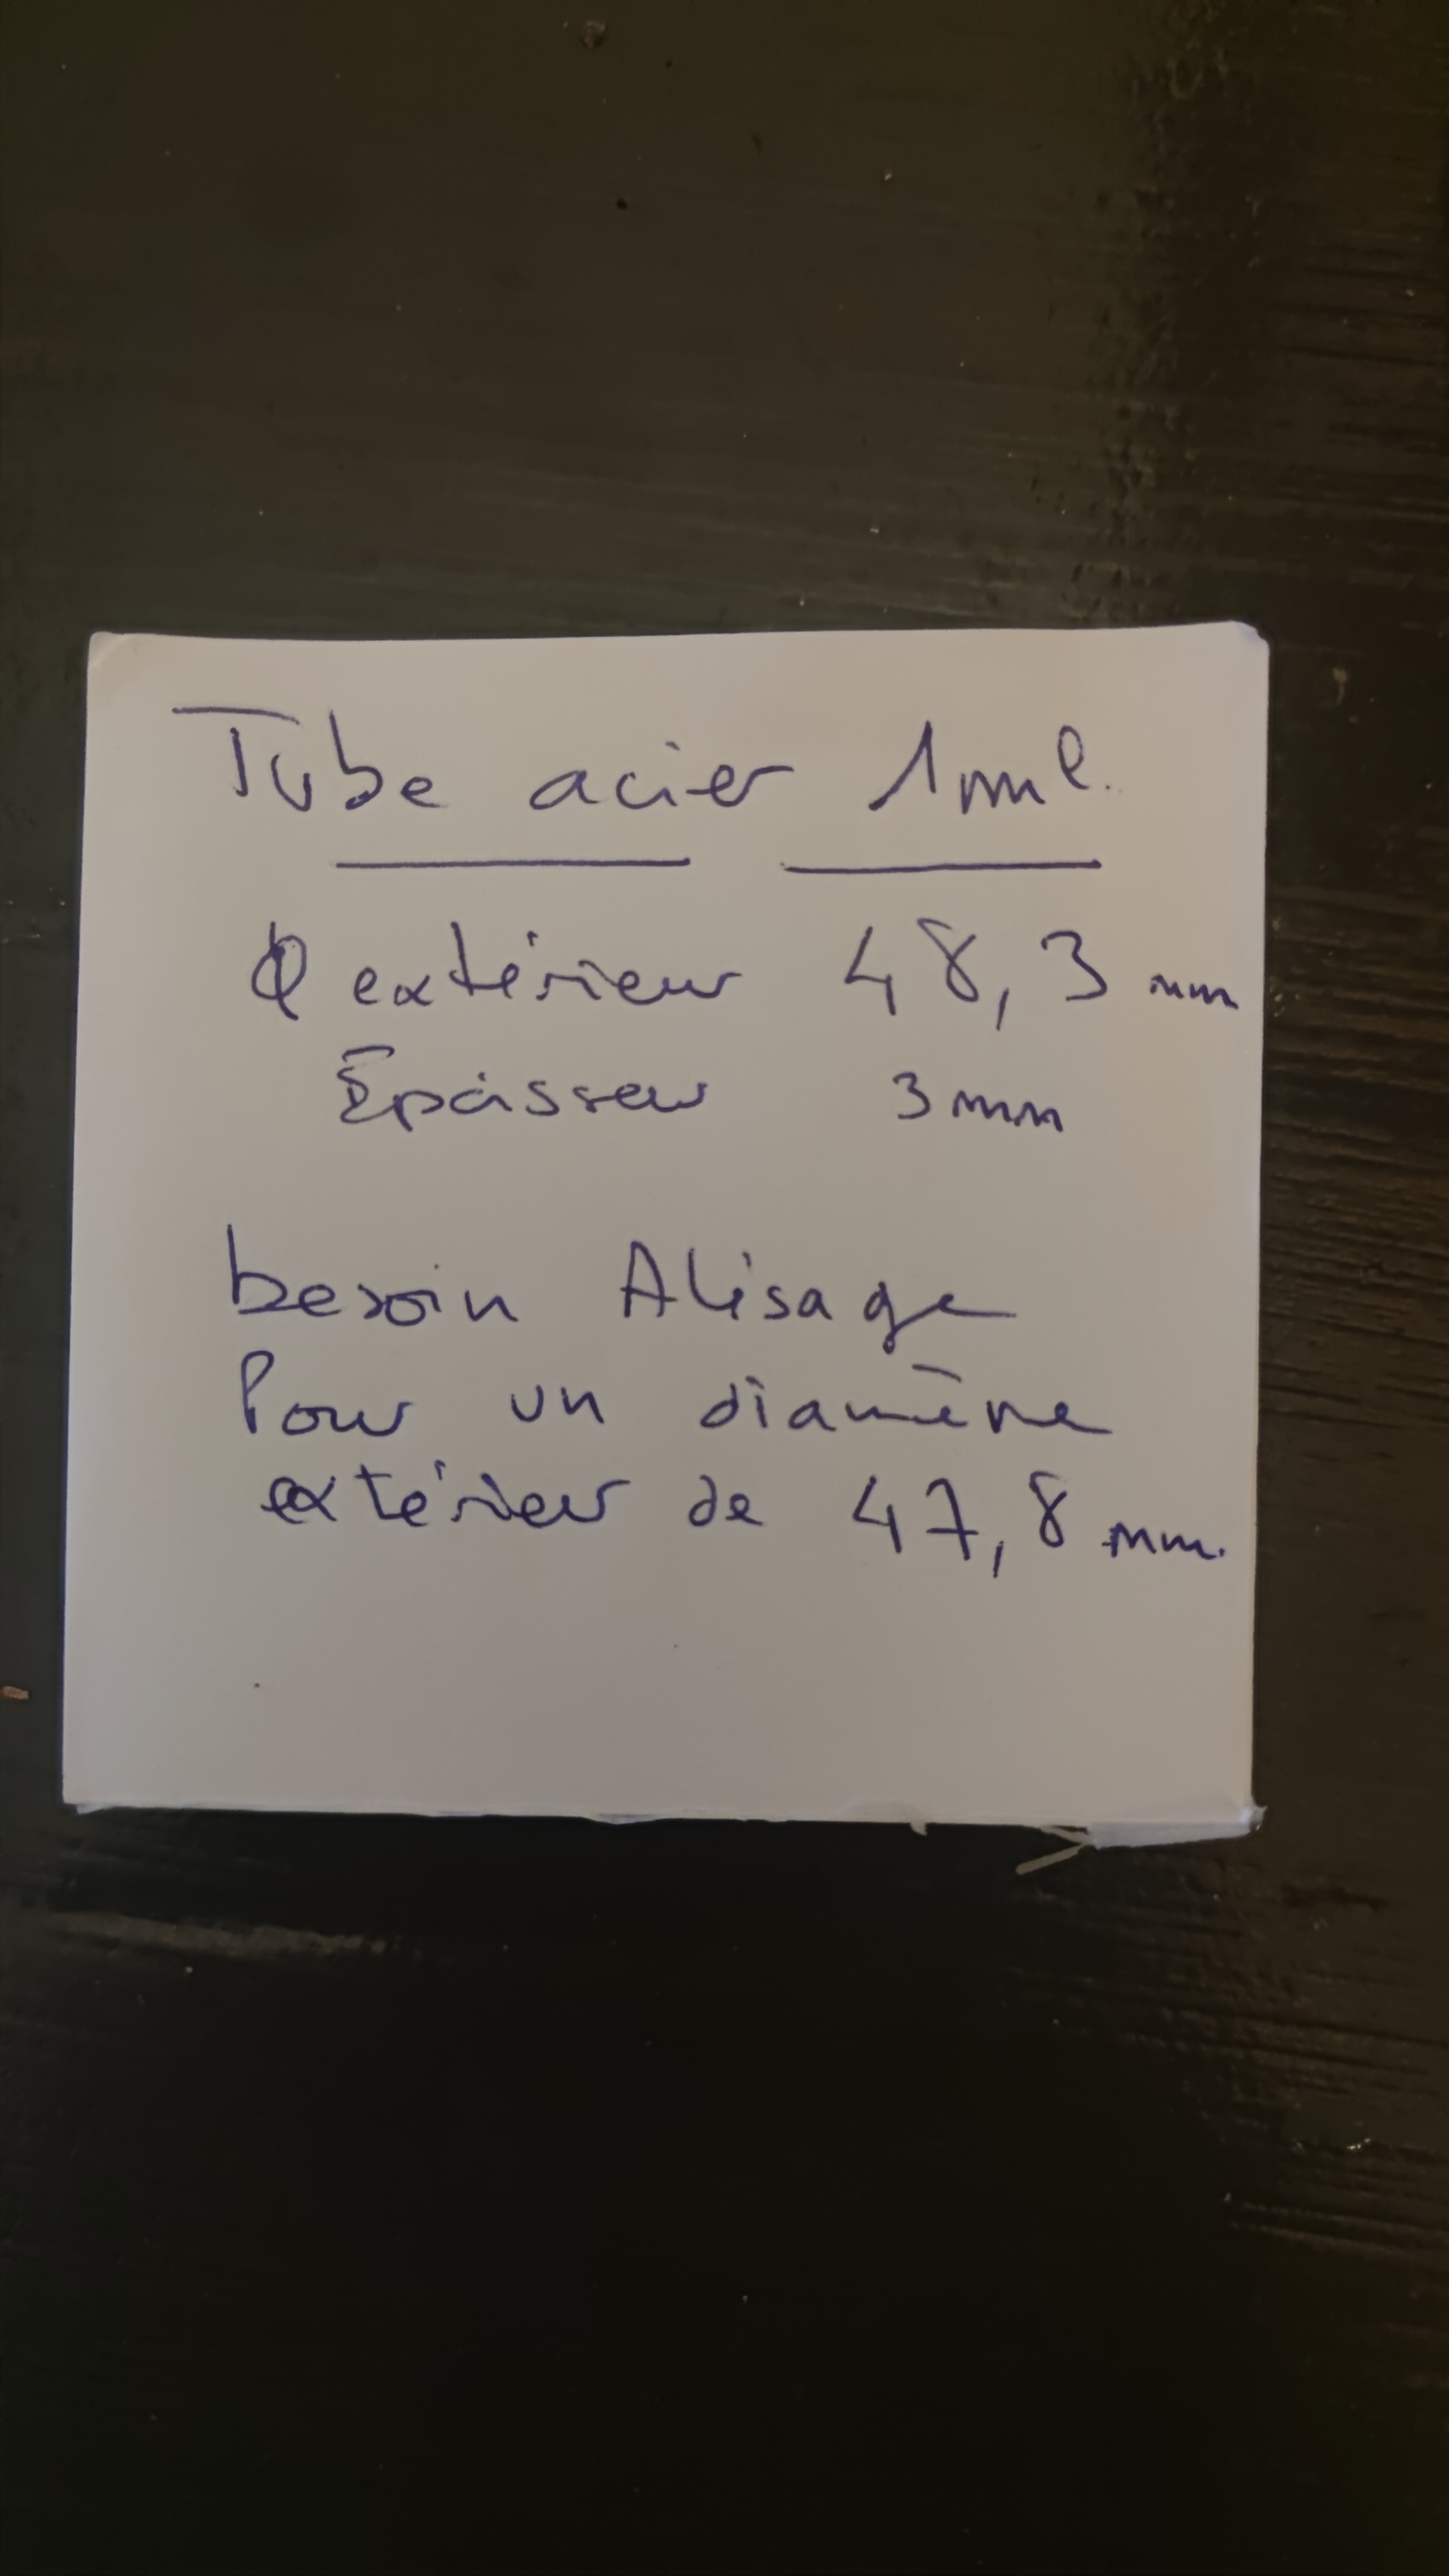 Tube acier 1 ml.
Φ extérieur 48,3 mm
Épaisseur 3 mm
besoin Alésage
Pour un diamètre
extérieur de 47,8 mm.